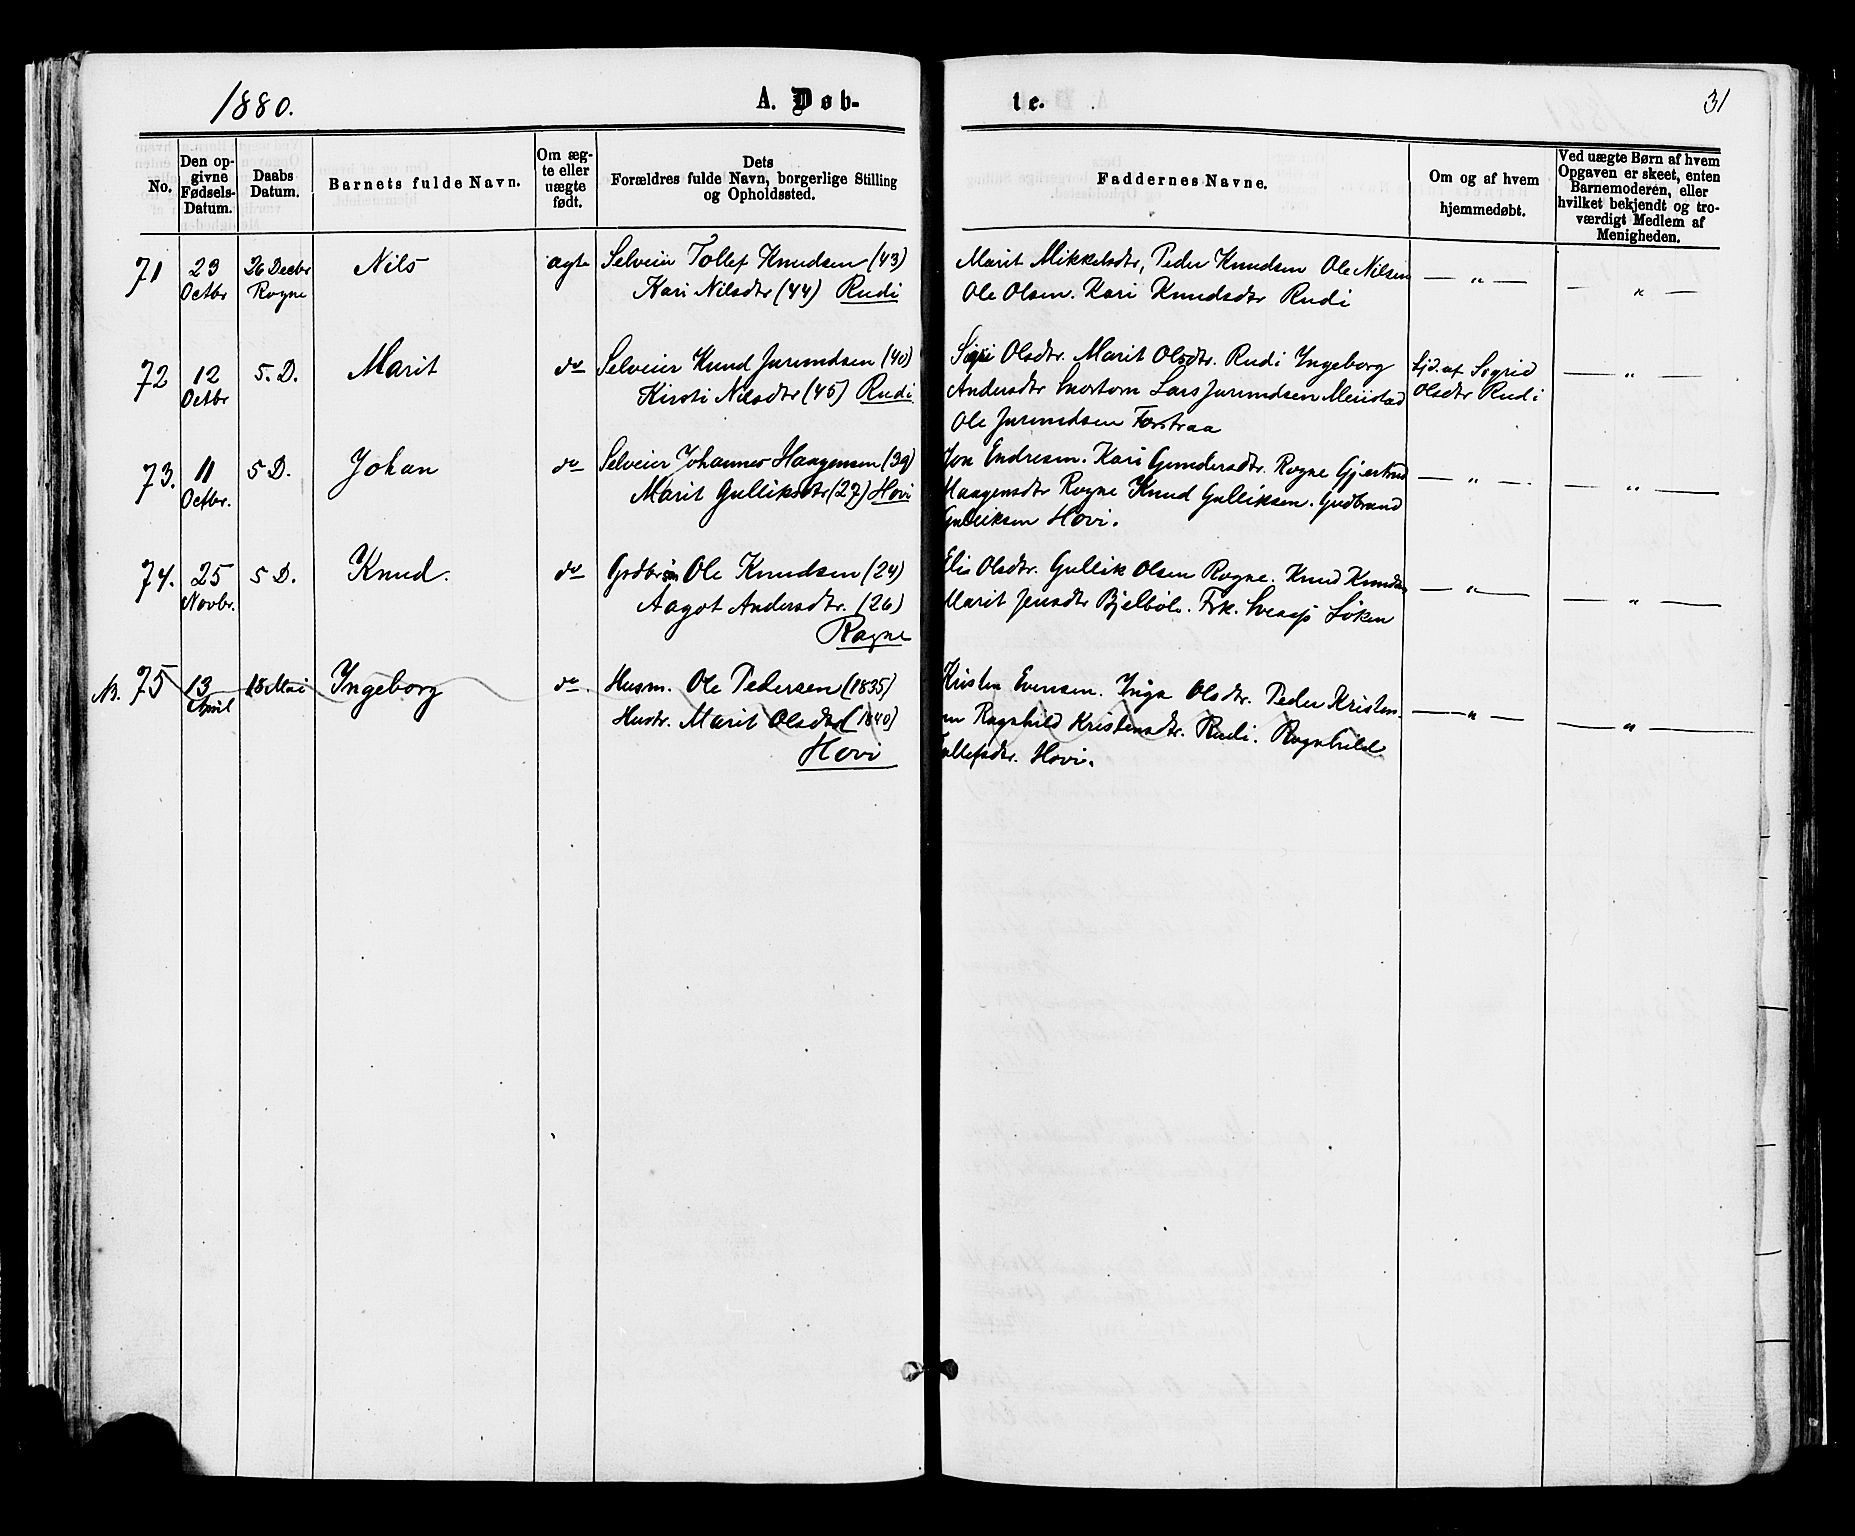 1880.
A. Døb-
te.
31
No.
Den op-
givne
Fødsels-
Datum.
Daabs
Datum.
Barnets fulde Navn.
Om æg-
te eller
uægte
født.
Dets
Forældres fulde Navn, borgerlige Stilling
og Opholdssted.
Faddernes Navne.
Om og af hvem
hjemmedøbt.
Ved uægte Børn af hvem
Opgaven er skeet, enten
Barnemoderen, eller
hvilket bekjendt og tro-
værdigt Medlem af
Menigheden.
71 29 Octbr 26 Decbr Rogne Nils ægte
Selveier Tollef Knudsen (43)
Kari Nilsdtr (44) Rudi
Marit Mikkelsdtr, Peder Knudsen Ole Nilsen
Ole Olsen. Kari Knudsdtr Rudi
— " — — " —
72 12 Octbr 5. D. Marit do
Selveier Knud Jurundsen (40)
Kirsti Nilsdtr (45) Rudi
Olsdtr. Marit Olsdtr. Rudi Ingeborg
Andersdtr Lars Jurundsen
Ole Jurundsen
Hjd. af Sigrid
Olsdtr Rudi
— " —
73. 11 Octbr. 5 D. Johan do
Selveier Johannes Haagensen (39)
Marit Gulliksdtr (27) Hovi
Jon Endresen. Kari Gundersdtr. Rogne Gjertrud
Haagensdtr Rogne Knud Gulliksen. Gudbrand
Gulliksen Hovi.
— " — — " —
74. 25 Novbr. 5 D. Knud. do
Ole Knudsen (24)
Aagot Andersdtr. (26)
Rogne
Olsdtr. Gullik Olsen Rogne. Knud Knudsen
Marit Jensdtr Bjelbøle. Frk. Løken
— " — — " —
N. 75 13 April 18 Mai Ingeborg do.
Husm. Ole Pedersen (1835)
Hustr. Marit Olsdtr (1840)
Hovi
Kristen Evensen. Inga Olsdtr. Peder Kristen-
sen Ragnhild Kristensdtr. Rudi. Ragnhild
Tollefsdtr. Hovi.
— " — — " —